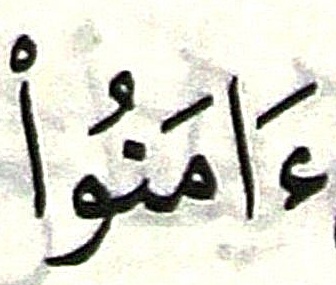 ءَامَنُواْ